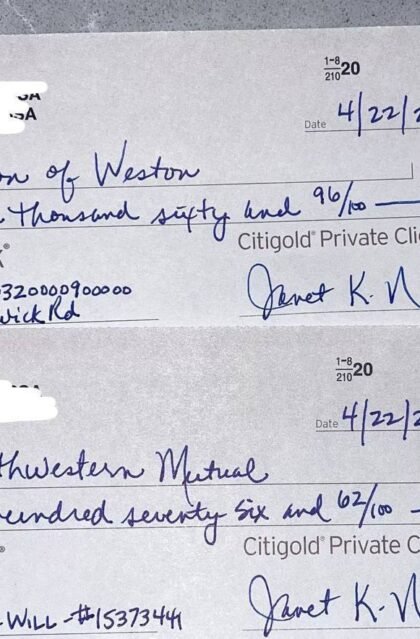 1-8
210 20
Date 4/22/
of Weston
Thousand sixty and 96/100
Citigold® Private
320000900000
wick Rd
Janet K. N
1-8
210 20
Date 4/22/
thwestern Mutual
hundred seventy Six and 62/100
Citigold® Private C
WILL - #15373441
Janet K. N